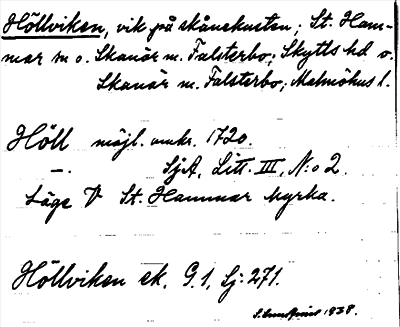 Höllviken, vik på skånekusten; St. Ham-
mar sn o. Skanör m. Falsterbo; Skytts hd o.
Skanör m. Falsterbo; Malmöhus l.
Höll möjl. omkr. 1720.
—.— SjA, Litt. III, N:o 2.
Läge V St. Hammar kyrka.
Höllviken ek. G. 1, Sj: 271.
1938.